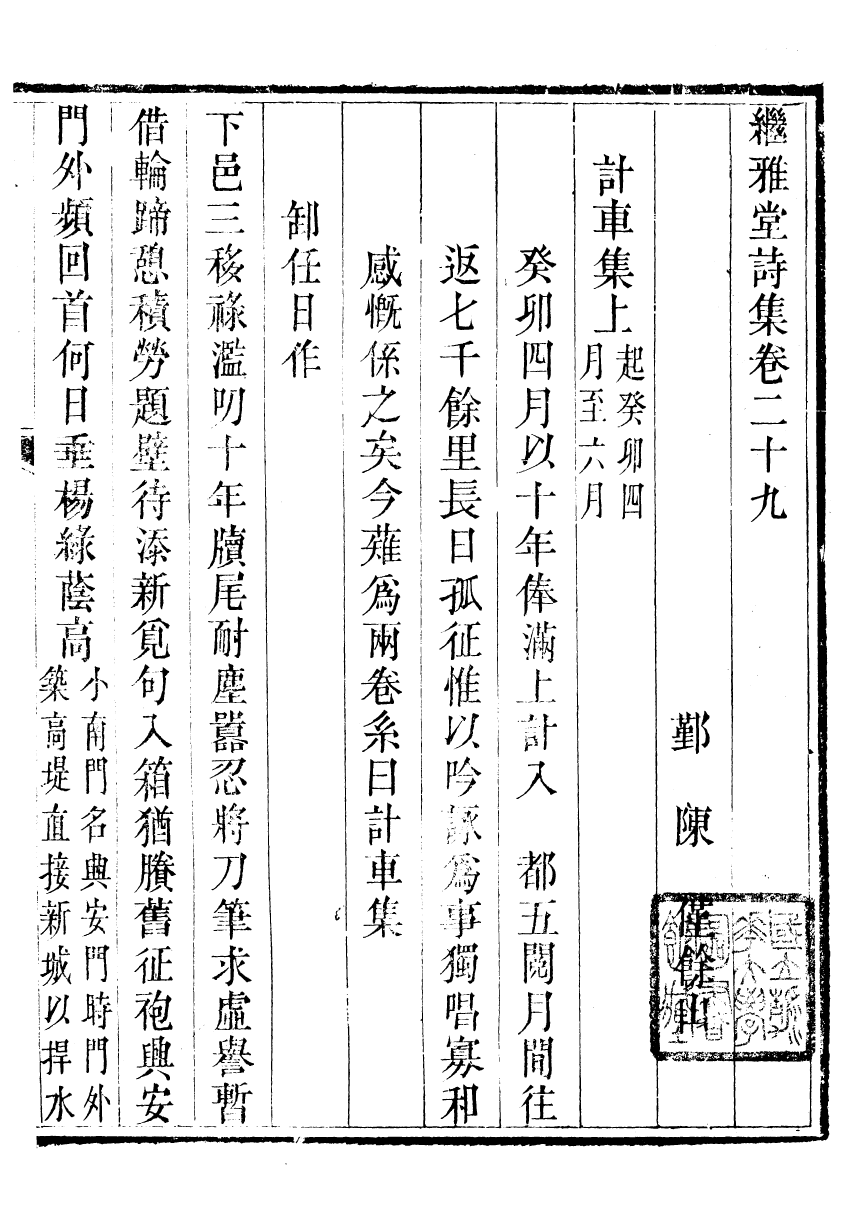 繼雅堂詩集卷二十九
鄞　陳　僅餘山
計車集上起癸卯四
月至六月
癸卯四月以十年俸滿上計入　都五閱月間往
返七千餘里長日孤征惟以吟詠爲事獨唱寡和
感慨係之矣今薙爲兩卷系曰計車集
卸任日作
下邑三移祿濫叨十年牘尾耐塵囂忍將刀筆求虛譽暫
借輪蹄憩積勞題壁待添新覓句入箱猶賸舊征袍興安
門外頻回首何日垂楊綠蔭高小南門名興安門時門外
築高堤直接新城以捍水